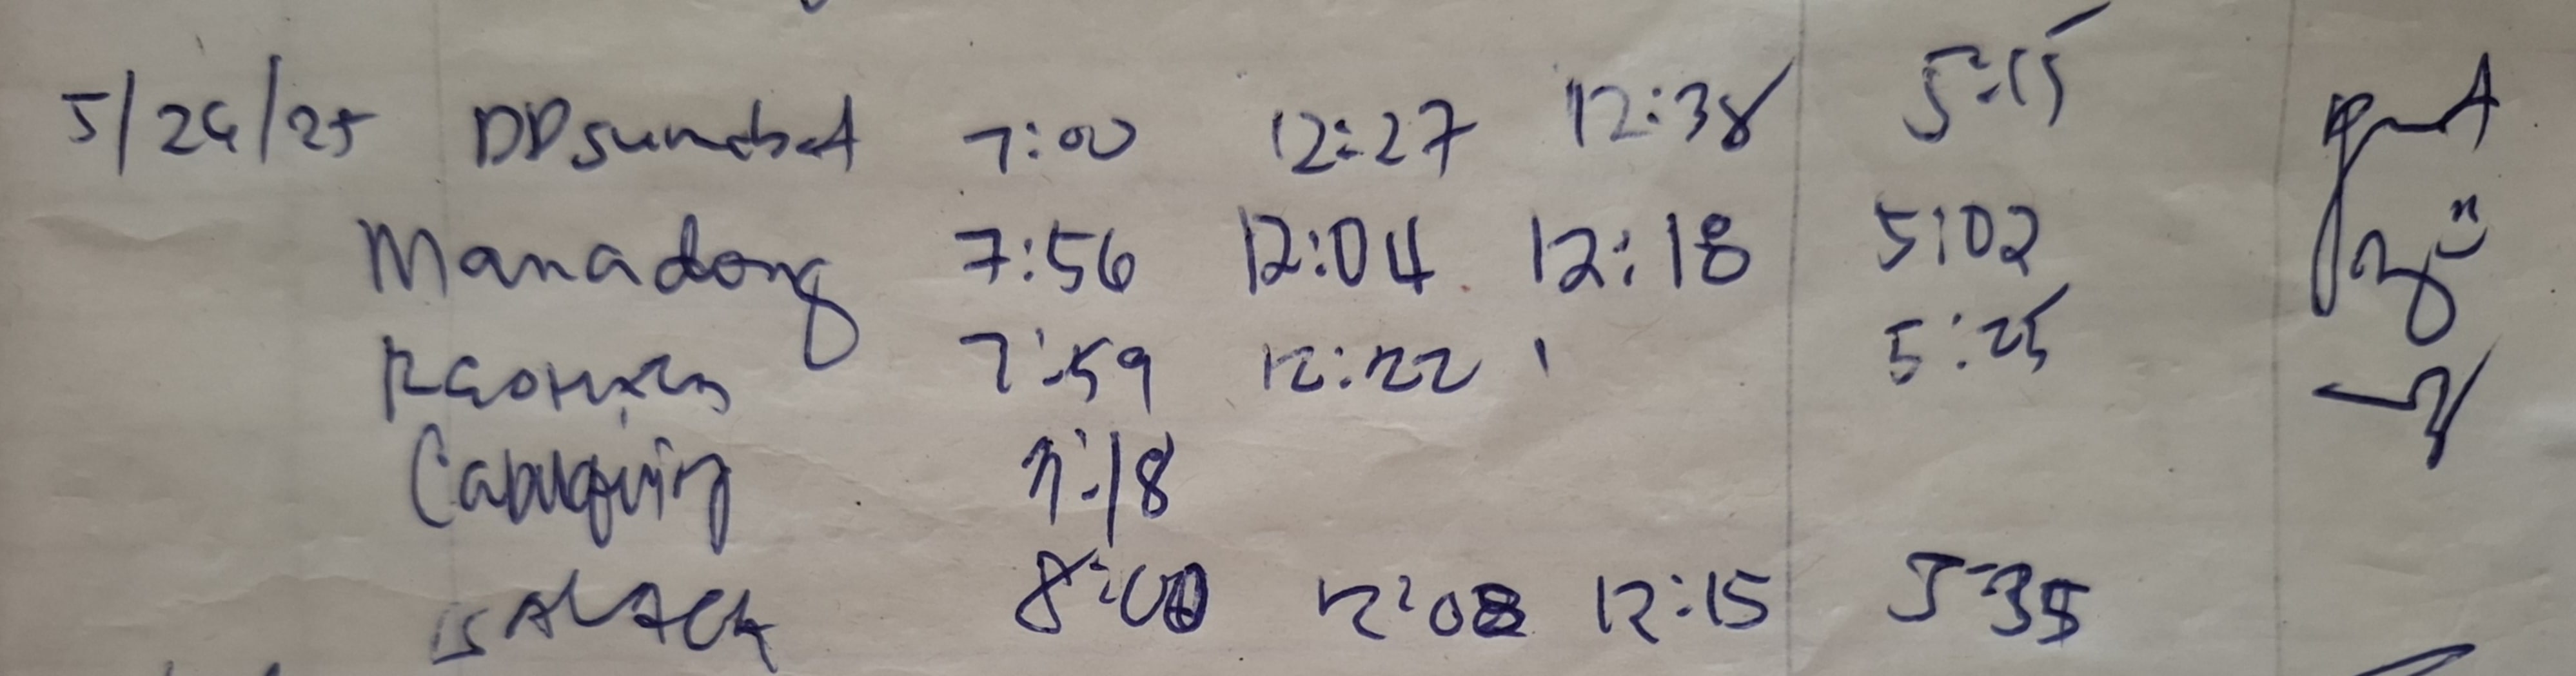 5/26/25 DDsumabat 7:00 12:27 12:38 5:15
Manadong 7:56 12:04 12:18 5:02
7:59 12:22 5:25
Cabuguing 7:18
8:00 12:08 12:15 5:35